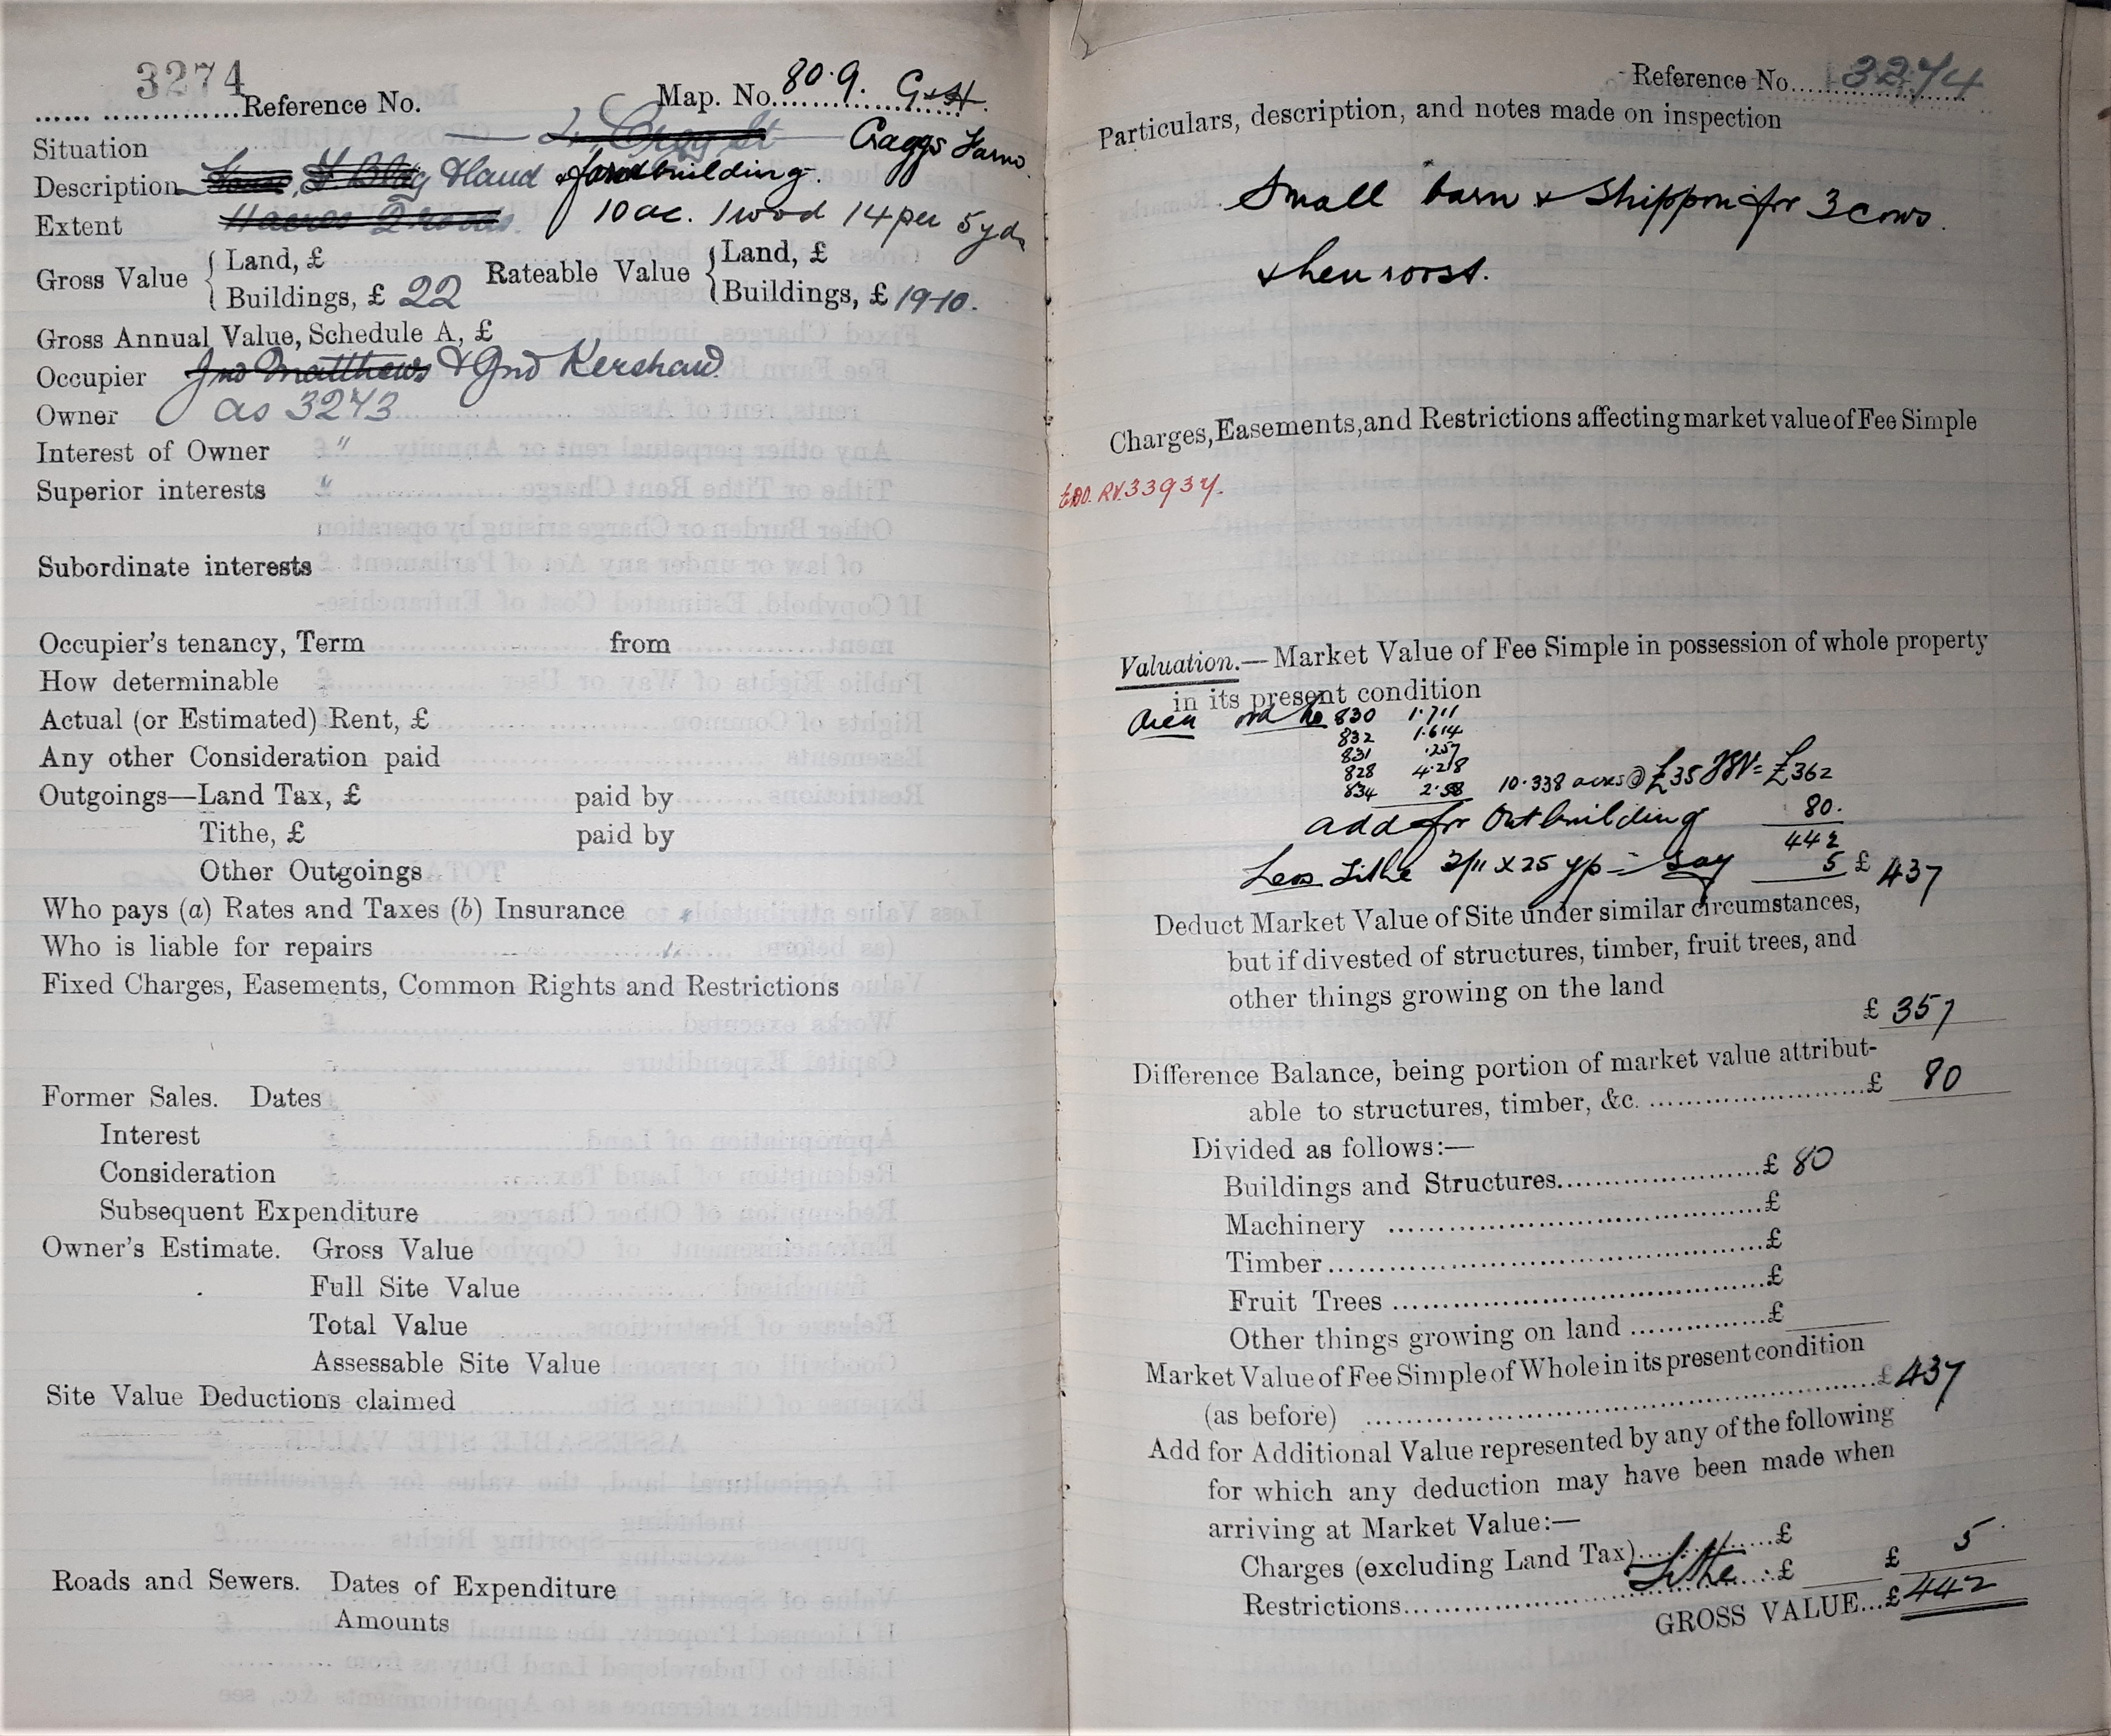 3274
Reference No. Map. No. 80.9. G & H.
Situation 4, Crag St Craggs Farm
Description House, F. Bldg & Land & farm building.
Extent 4 acres 2 roods. 10 ac. 1 rood 14 per 5 yds
Gross Value { Land, £ Rateable Value { Land, £
Buildings, £ 22 Buildings, £ 19-10.
Gross Annual Value, Schedule A, £
Occupier Jno Matthews & Jno Kershaw.
Owner as 3273
Interest of Owner "
Superior interests "
Subordinate interests
Occupier's tenancy, Term from
How determinable
Actual (or Estimated) Rent, £
Any other Consideration paid
Outgoings—Land Tax, £ paid by
Tithe, £ paid by
Other Outgoings
Who pays (a) Rates and Taxes (b) Insurance
Who is liable for repairs
Fixed Charges, Easements, Common Rights and Restrictions
Former Sales. Dates
Interest
Consideration
Subsequent Expenditure
Owner's Estimate. Gross Value
Full Site Value
Total Value
Assessable Site Value
Site Value Deductions claimed
Roads and Sewers. Dates of Expenditure
Amounts
Reference No. 3274
Particulars, description, and notes made on inspection
Small barn & Shippon for 3 cows.
& hen roost.
Charges, Easements, and Restrictions affecting market value of Fee Simple
Valuation.—Market Value of Fee Simple in possession of whole property
in its present condition
Area ord No 830 1.711
832 1.614
831 .257
828 4.218
834 2.58 10.338 acres @ £35 = £362
add for Outbuilding 80.
442
Less Tithe 3/11 x 25 yp = say 5 £ 437
Deduct Market Value of Site under similar circumstances,
but if divested of structures, timber, fruit trees, and
other things growing on the land
£ 357
Difference Balance, being portion of market value attribut-
able to structures, timber, &c. £ 80
Divided as follows:—
Buildings and Structures £ 80
Machinery £
Timber £
Fruit Trees £
Other things growing on land £
Market Value of Fee Simple of Whole in its present condition
(as before) £ 437
Add for Additional Value represented by any of the following
for which any deduction may have been made when
arriving at Market Value:—
Charges (excluding Land Tax) £
Restrictions Tithe £ £ 5
GROSS VALUE...£ 442